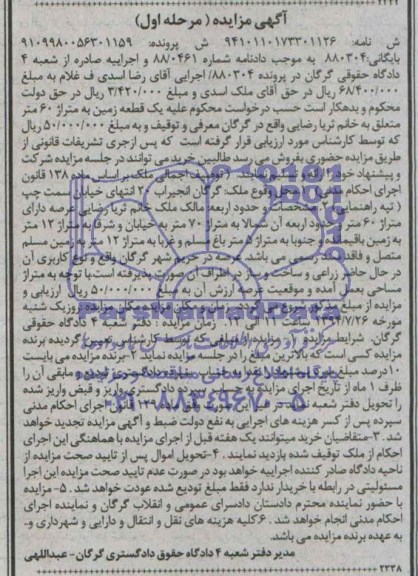 آگهی مزایده ( مرحله اول )
ش نامه: ۹۴۱۰۱۱۰۱۷۳۳۰۱۱۲۶ ش پرونده: ۹۱۰۹۹۸۰۰۵۶۳۰۱۱۵۹
بایگانی: ۸۸۰۳۰۴ به موجب دادنامه شماره ۸۸/۰۴۶۱ و اجراییه صادره از شعبه ۴
دادگاه حقوقی گرگان در پرونده ۸۸۰۳۰۴/ اجرایی آقای رضا اسدی ف غلام به مبلغ
۶۸/۴۰۰/۰۰۰ ریال در حق آقای ملک اسدی و مبلغ ۳/۴۲۰/۰۰۰ ریال در حق دولت
محکوم و بدهکار است حسب درخواست محکوم علیه یک قطعه زمین به متراژ ۶۰ متر
متعلق به خانم ثریا رضایی واقع در گرگان معرفی و توقیف و به مبلغ ۵۰/۰۰۰/۰۰۰ ریال
که توسط کارشناس مورد ارزیابی قرار گرفته است که پس ازجری تشریفات قانونی از
طریق مزایده حضوری بفروش می رسد طالبین خرید می توانند در جلسه مزایده شرکت
و پیشنهاد خود را توصیف اجمالی ملک بر اساس ماده ۱۳۸ قانون
اجرای احکام مدنی: محل وقوع ملک: گرگان انجیراب ۲۰ انتهای خیابان سمت چپ
( تپه راهنمایی ) ۲-مشخصات و حدود اربعه: مالک ملک خانم ثریا رضایی عرصه دارای
متراژ ۶۰ متر حدود اربعه آن شمالا به متراژ ۷۰ متر به خیابان و شرقا به متراژ ۱۲ متر
به زمین باقیمانده و جنوبا به متراژ ۵ متر باغ مسلم و غربا به متراژ ۱۲ متر به زمین مسلم
متصل و فاقد می باشد. عرصه در حریم شهر گرگان واقع و نوع کاربری آن
در حال حاضر زراعی و ساخت وساز در اطراف آن صورت پذیرفته است با توجه به متراژ
مساحی بعمل آمده و موقعیت عرصه ارزش آن به مبلغ ۵۰/۰۰۰/۰۰۰ ریال ارزیابی و
مزایده از مبلغ مذکور شروع زمان و مکان مزایده روزیک شنبه
مورخه ۹۴/۷/۲۶ ساعت ۱۱ الی ۱۲. زمان مزایده : دفتر شعبه ۴ دادگاه حقوقی
گرگان. شرایط مزایده: توسط کارشناس تعیین گردیده برنده
مزایده کسی است که بالاترین مبلغ را در جلسه مزایده نماید ۲-برنده مزایده می بایست
۱۰درصد مبلغ مابقی آن را
ظرف ۱ ماه از تاریخ اجرای مزایده به حساب سپرده دادگستری واریز و قبض واریز شده
را تحویل دفتر شعبه نماید در غیر این صورت قانون اجرای احکام مدنی
سپرده پس از کسر هزینه های اجرایی به نفع دولت ضبط و آگهی مزایده تجدید خواهد
شد .۳-متقاضیان خرید میتوانند یک هفته قبل از اجرای مزایده با هماهنگی این اجرای
احکام از ملک توقیف شده بازدید نمایند . ۴-تحویل اموال پس از تایید صحت مزایده از
ناحیه دادگاه صادر کننده اجراییه خواهد بود در صورت عدم تایید صحت مزایده این اجرا
مسئولیتی در رابطه با خریدار ندارد فقط مبلغ تودیع شده عودت خواهد شد . ۵- مزایده
با حضور نماینده محترم دادستان دادسرای عمومی و انقلاب گرگان و نماینده اجرای
احکام مدنی انجام خواهد شد . ۶.کلیه هزینه های نقل و انتقال و دارایی و شهرداری و..
به عهده برنده مزایده می باشد.
مدیر دفتر شعبه ۴ دادگاه حقوق دادگستری گرگان- عبداللهی
۲۲۳۸
ParsNamadData
۰۲۱-۸۸۳۴۹۶۷۰-۵